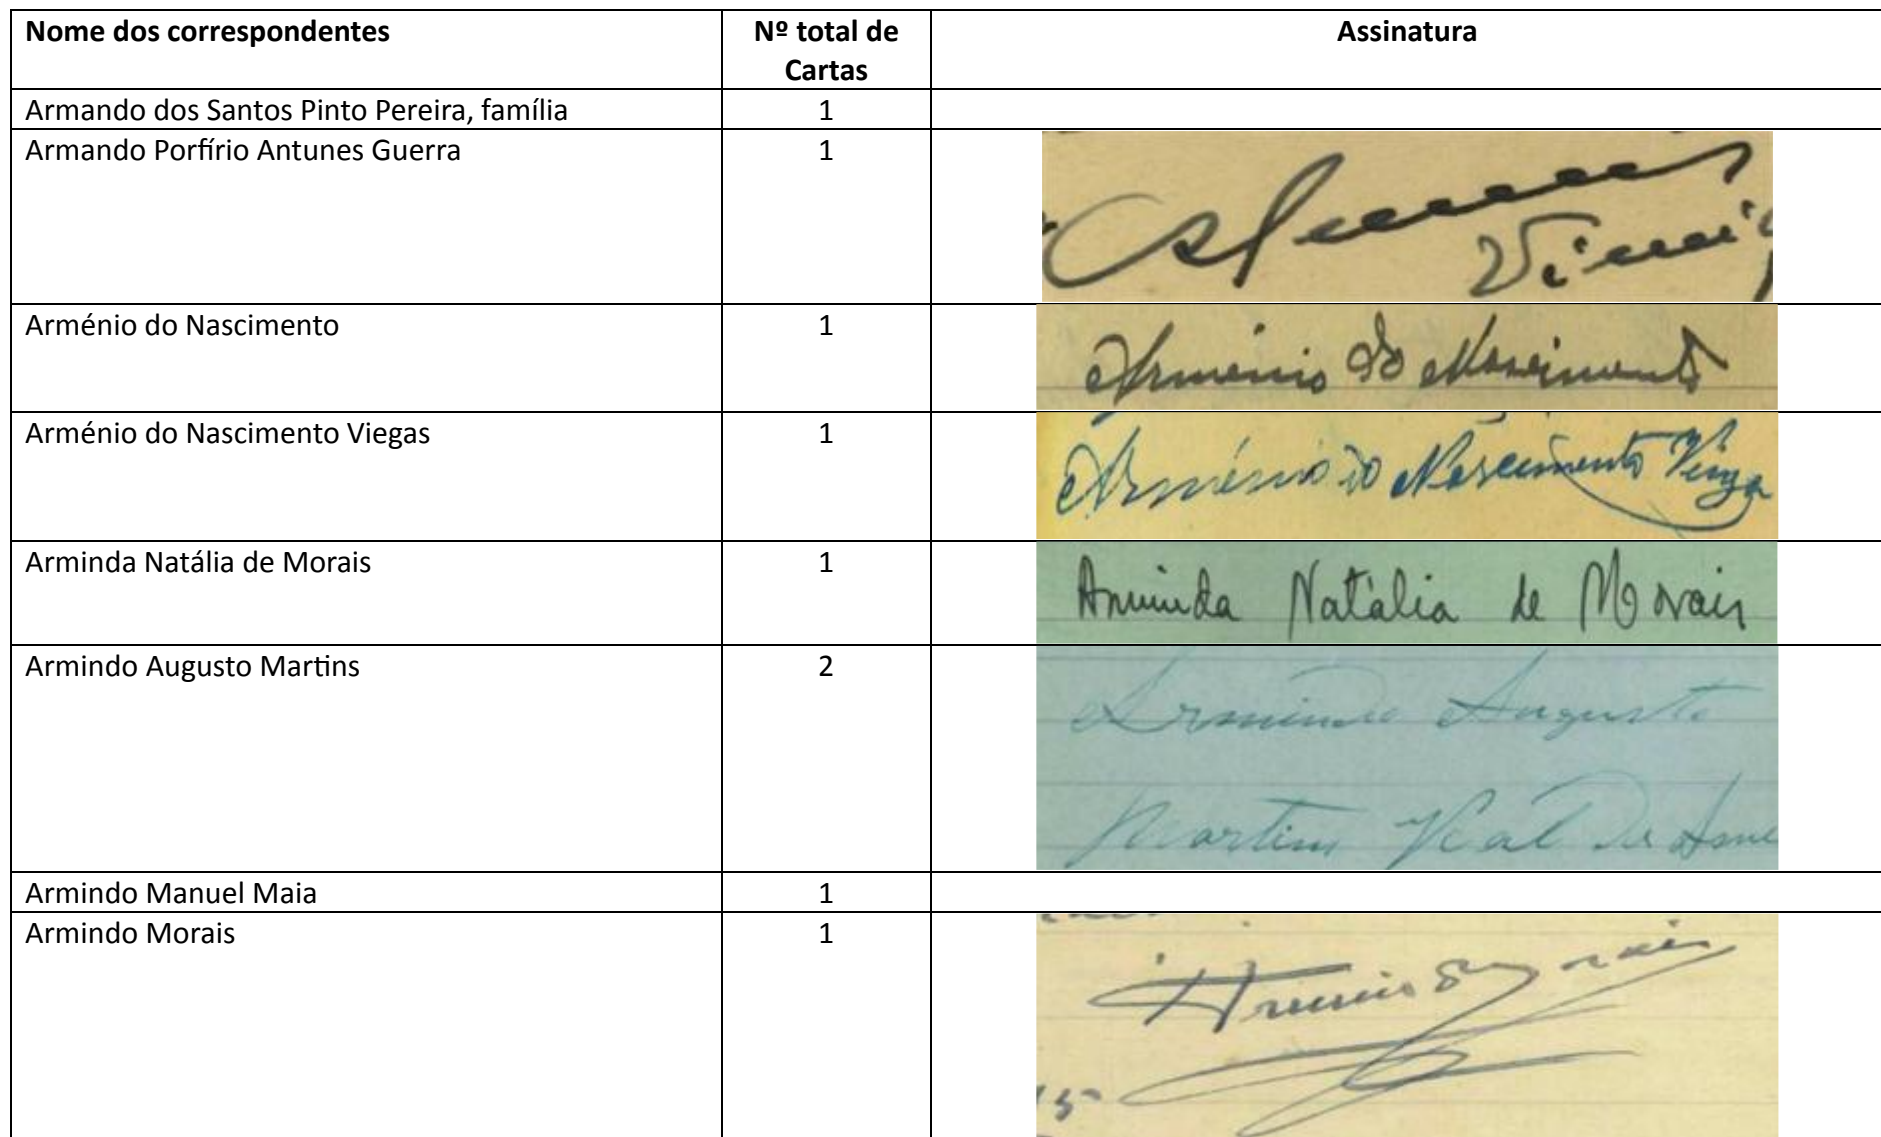 Nome dos correspondentes
Nº total de
Cartas
Assinatura
Armando dos Santos Pinto Pereira, família
1
Armando Porfírio Antunes Guerra
1
Arménio do Nascimento
1
Arménio do Nascimento
Arménio do Nascimento Viegas
1
Arménio do Nascimento Viega
Arminda Natália de Morais
1
Arminda Natália de Morais
Armindo Augusto Martins
2
Armindo Augusto
Martins Val de Asne
Armindo Manuel Maia
1
Armindo Morais
1
Armindo Morais
15